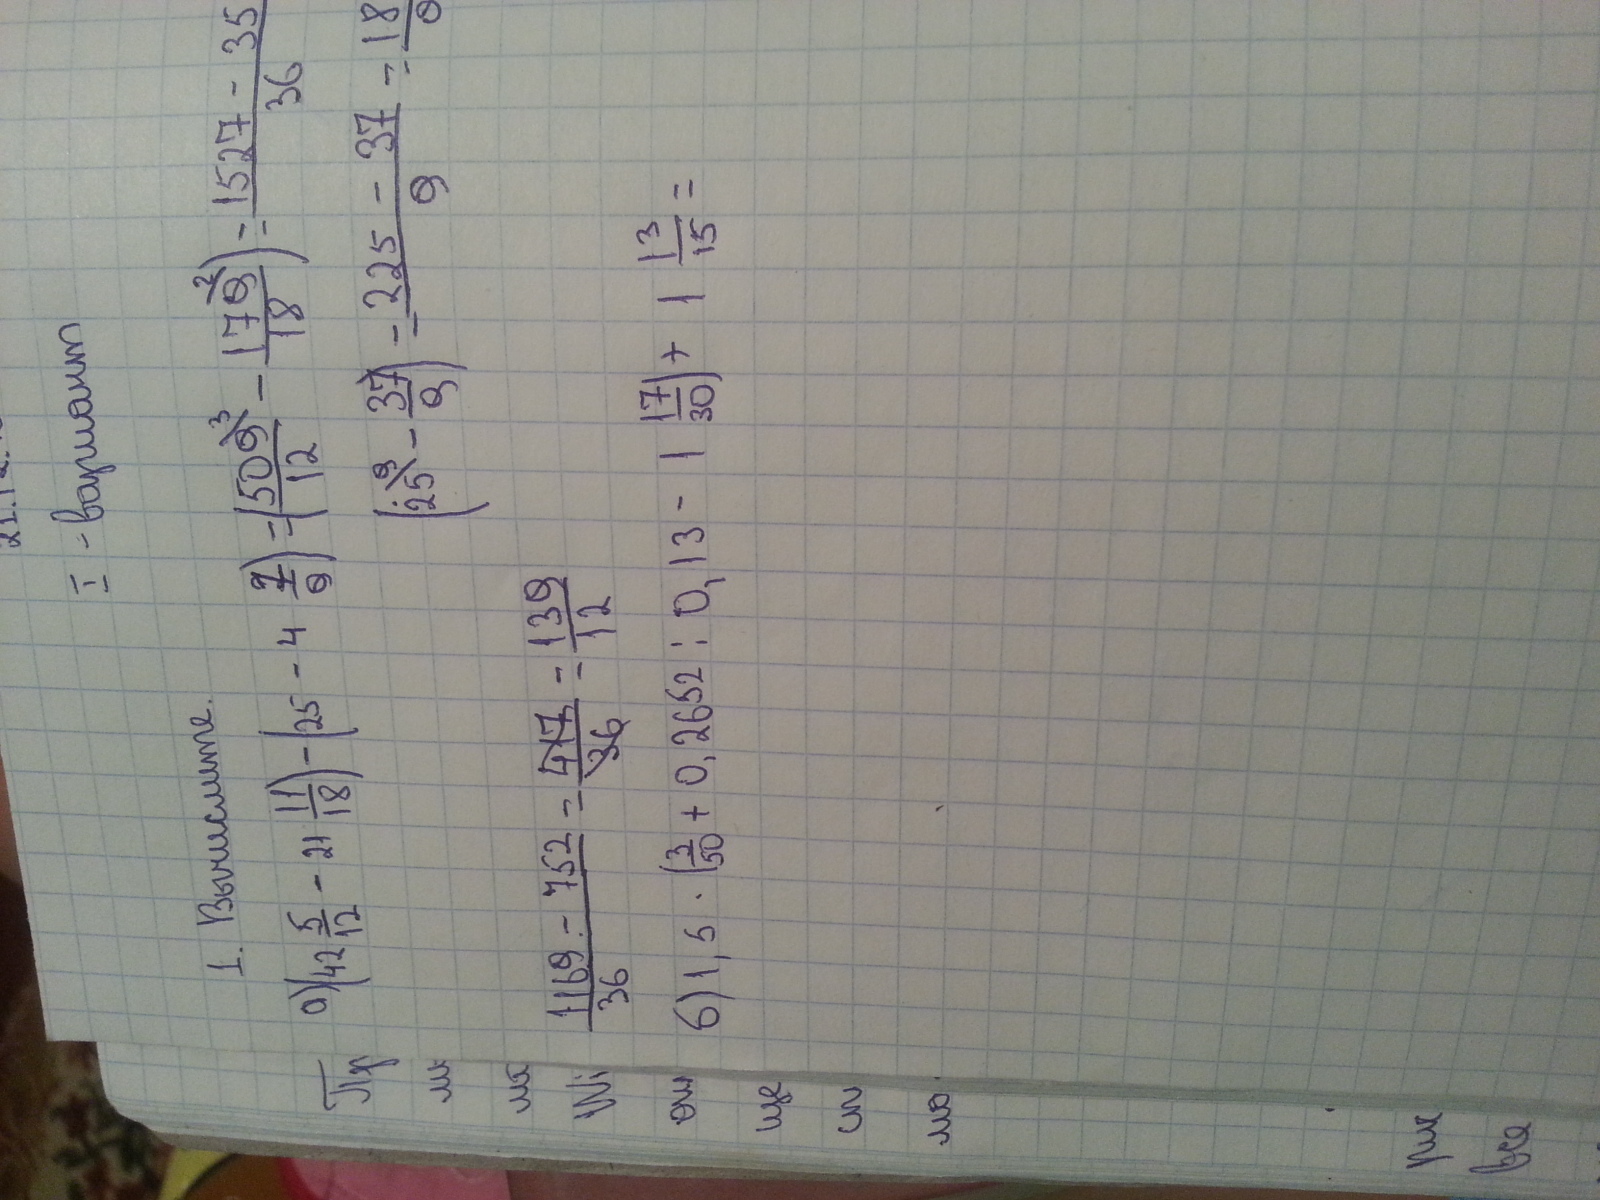 I - вариант
1. Вычислите.
а) (42 5/12 - 21 11/18) - (25 - 4 7/9) = (509/12 ³ - 179/18 ²) = 1527 - 35
36
(25 ⁹ - 37/9) = 225 - 37 / 9 = 18
9
1169 - 752 / 36 = 417/36 = 139/12
б) 1,5 · (3/50 + 0,2652 : 0,13 - 1 17/30) + 1 13/15 =
Пр
оп
ще
сп
мо
рих
все